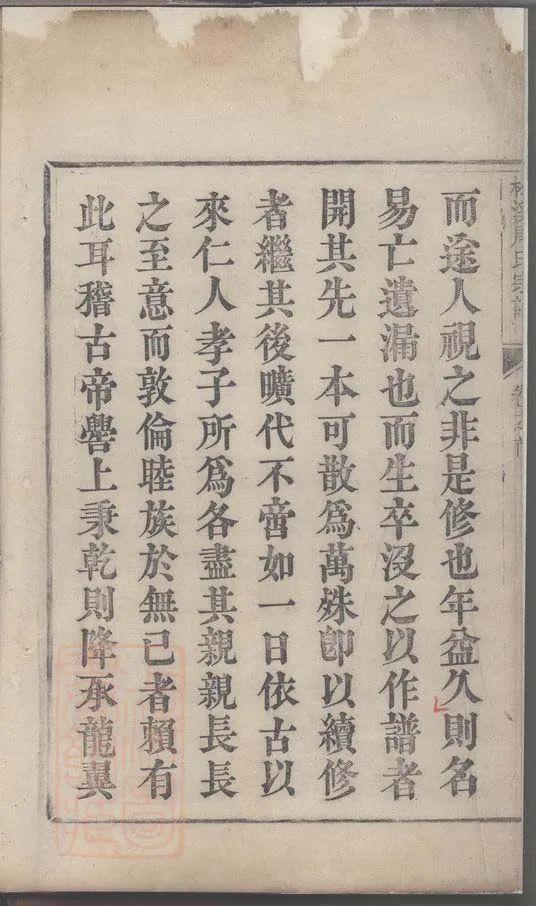 而途人視之非是修也年益久則名
易亡遺漏也而生卒没之以作譜者
開其先一本可散爲萬殊卽以續修
者繼其後曠代不啻如一日依古以
來仁人孝子所爲各盡其親親長長
之至意而敦倫睦族於無己者賴有
此耳稽古帝嚳上秉乾則降承龍翼